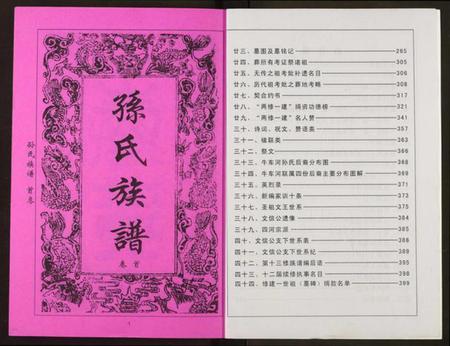 孙氏族谱 首卷
孫氏族譜
卷首
廿三、墓图及墓铭记 265
廿四、葬所有考证祭诸祖 305
廿五、无传之祖考妣补遗名目 306
廿六、历代祖考妣之葬地考略 308
廿七、契合约书 317
廿八、“两修一建”捐资功德榜 321
廿九、“两修一建”名人赞 341
三十、诗词、祝文、赞语类 357
三十一、楹联类 363
三十二、祭文 365
三十三、牛车河孙氏后裔分布图 368
三十四、牛车河联属四份后裔主要分布图解 369
三十五、英烈录 371
三十六、新编家训十条 372
三十七、圣祖文王世系 375
三十八、文信公遗像 384
三十九、四河宗派 385
四十、文信公支下世系表 388
四十一、文信公支下世系纪 388
四十二、第十三修族谱编后语 395
四十三、十二届续修执事名目 398
四十四、修建一世祖（墓碑）捐款名单 399